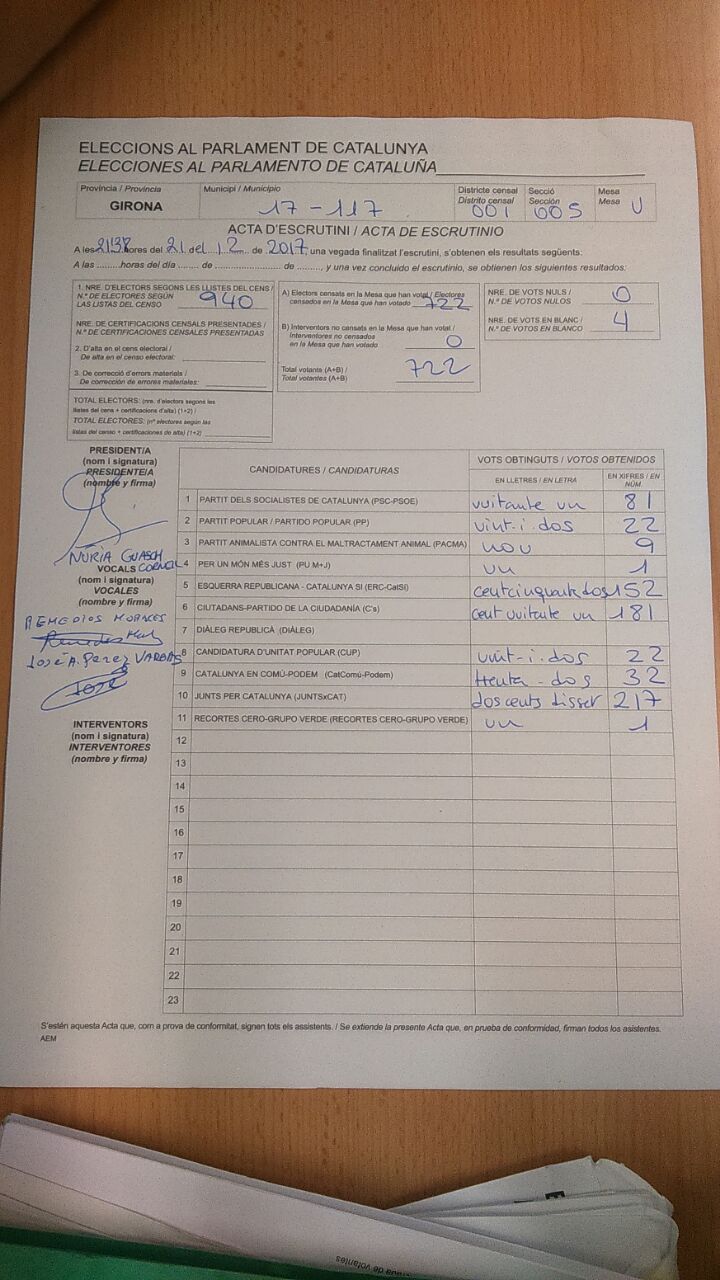 ELECCIONS AL PARLAMENT DE CATALUNYA
ELECCIONES AL PARLAMENTO DE CATALUÑA
Província / Provincia
GIRONA
Municipi / Municipio
17-117
Districte censal
Distrito censal
001
Secció
Sección
005
Mesa
Mesa
U
ACTA D'ESCRUTINI / ACTA DE ESCRUTINIO
A les 21:38 hores del 21 del 12 de 2017, una vegada finalitzat l'escrutini, s'obtenen els resultats següents:
A las ......... horas del día ....... de ..................... de ........, y una vez concluido el escrutinio, se obtienen los siguientes resultados:
1. NRE. D'ELECTORS SEGONS LES LLISTES DEL CENS /
N.º DE ELECTORES SEGÚN
LAS LISTAS DEL CENSO 940
NRE. DE CERTIFICACIONS CENSALS PRESENTADES /
N.º DE CERTIFICACIONES CENSALES PRESENTADAS
2. D'alta en el cens electoral /
De alta en el censo electoral:
3. De correcció d'errors materials /
De corrección de errores materiales:
TOTAL ELECTORS: (nre. d'electors segons les
llistes del cens + certificacions d'alta) (1+2) /
TOTAL ELECTORES: (nº electores según las
listas del censo + certificaciones de alta) (1+2)
A) Electors censats en la Mesa que han votat / Electores
censados en la Mesa que han votado 722
B) Interventors no censats en la Mesa que han votat /
Interventores no censados
en la Mesa que han votado 0
Total votants (A+B) /
Total votantes (A+B) 722
NRE. DE VOTS NULS /
N.º DE VOTOS NULOS 0
NRE. DE VOTS EN BLANC /
N.º DE VOTOS EN BLANCO 4
PRESIDENT/A
(nom i signatura)
PRESIDENTE/A
(nombre y firma)
NÚRIA GUASCH
VOCALS
(nom i signatura)
VOCALES
(nombre y firma)
REMEDIOS MORALES
José A. Perez VARGAS
José
INTERVENTORS
(nom i signatura)
INTERVENTORES
(nombre y firma)
CANDIDATURES / CANDIDATURAS
VOTS OBTINGUTS / VOTOS OBTENIDOS
EN LLETRES / EN LETRA
EN XIFRES / EN NÚM.
1 PARTIT DELS SOCIALISTES DE CATALUNYA (PSC-PSOE) vuitanta un 81
2 PARTIT POPULAR / PARTIDO POPULAR (PP) vint.i.dos 22
3 PARTIT ANIMALISTA CONTRA EL MALTRACTAMENT ANIMAL (PACMA) nou 9
4 PER UN MÓN MÉS JUST (PU M+J) un 1
5 ESQUERRA REPUBLICANA - CATALUNYA SI (ERC-CatSI) centcinquanta dos 152
6 CIUTADANS-PARTIDO DE LA CIUDADANÍA (C's) cent vuitanta un 181
7 DIÀLEG REPUBLICÀ (DIÀLEG)
8 CANDIDATURA D'UNITAT POPULAR (CUP) vint-i.dos 22
9 CATALUNYA EN COMÚ-PODEM (CatComú-Podem) trenta-dos 32
10 JUNTS PER CATALUNYA (JUNTSxCAT) dos cents disset 217
11 RECORTES CERO-GRUPO VERDE (RECORTES CERO-GRUPO VERDE) un 1
12
13
14
15
16
17
18
19
20
21
22
23
S'estén aquesta Acta que, com a prova de conformitat, signen tots els assistents. / Se extiende la presente Acta que, en prueba de conformidad, firman todos los asistentes.
AEM
de votantes